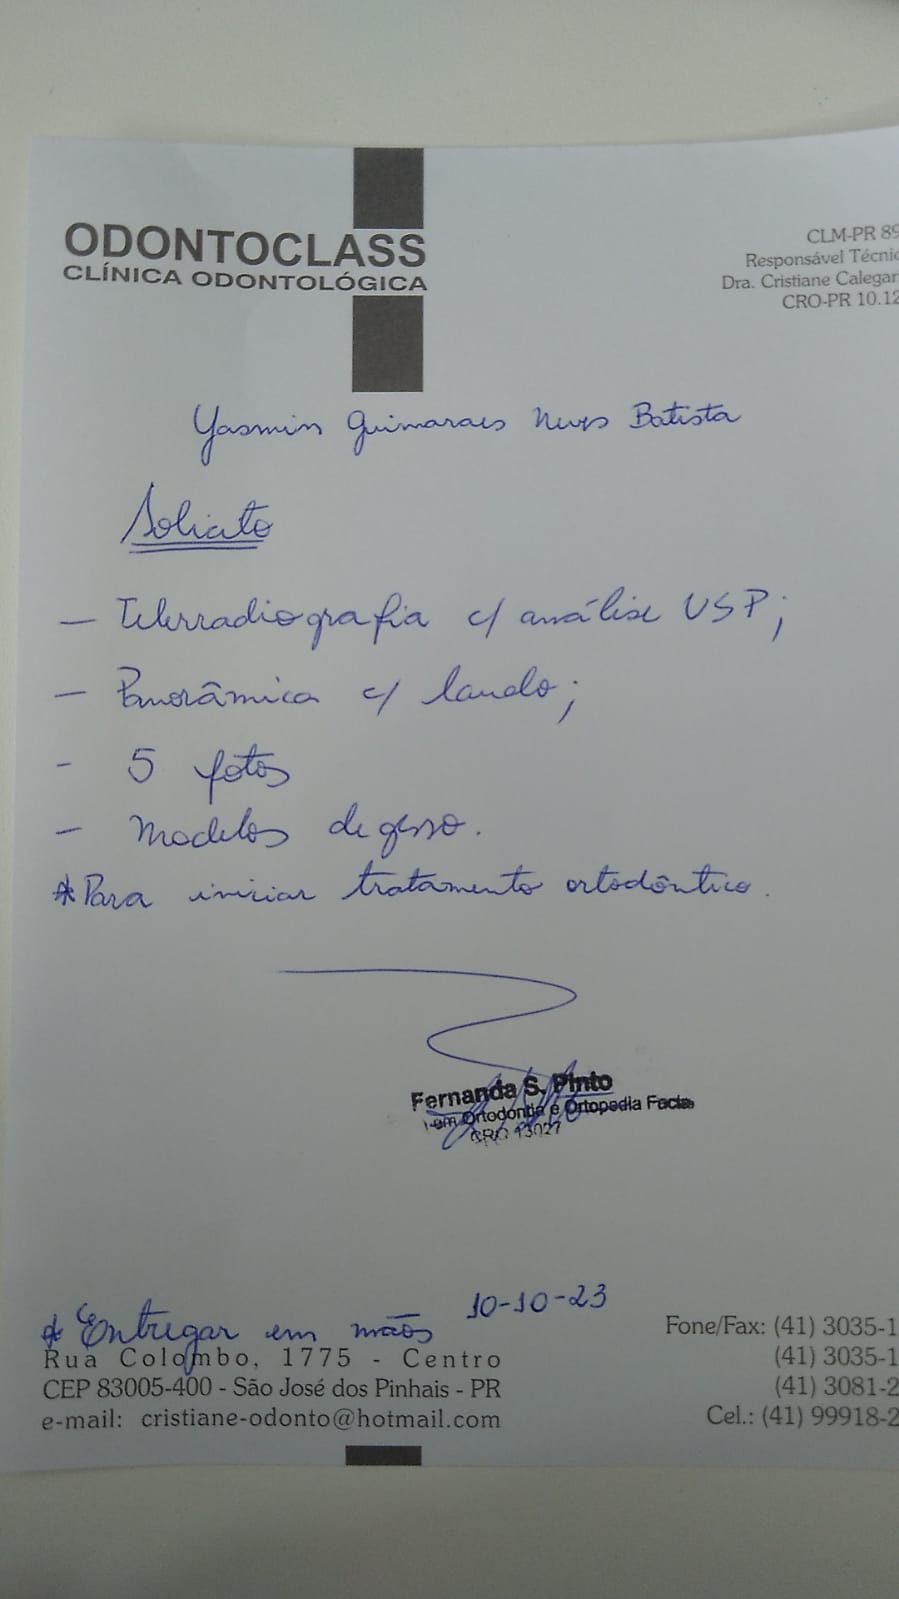 ODONTOCLASS
CLÍNICA ODONTOLÓGICA
CLM-PR 89
Responsável Técnic
Dra. Cristiane Calegar
CRO-PR 10.12
Yasmin Guimaraes Neves Batista
Solicito
- Telerradiografia c/ análise USP;
- Panorâmica c/ laudo;
- 5 fotos
- Modelos de gesso.
* Para iniciar tratamento ortodôntico.
Fernanda S. Pinto
em Ortodontia e Ortopedia Facial
CRO 13027
* Entregar em mãos 10-10-23
Rua Colombo, 1775 - Centro
CEP 83005-400 - São José dos Pinhais - PR
e-mail: cristiane-odonto@hotmail.com
Fone/Fax: (41) 3035-1
(41) 3035-1
(41) 3081-2
Cel.: (41) 99918-2